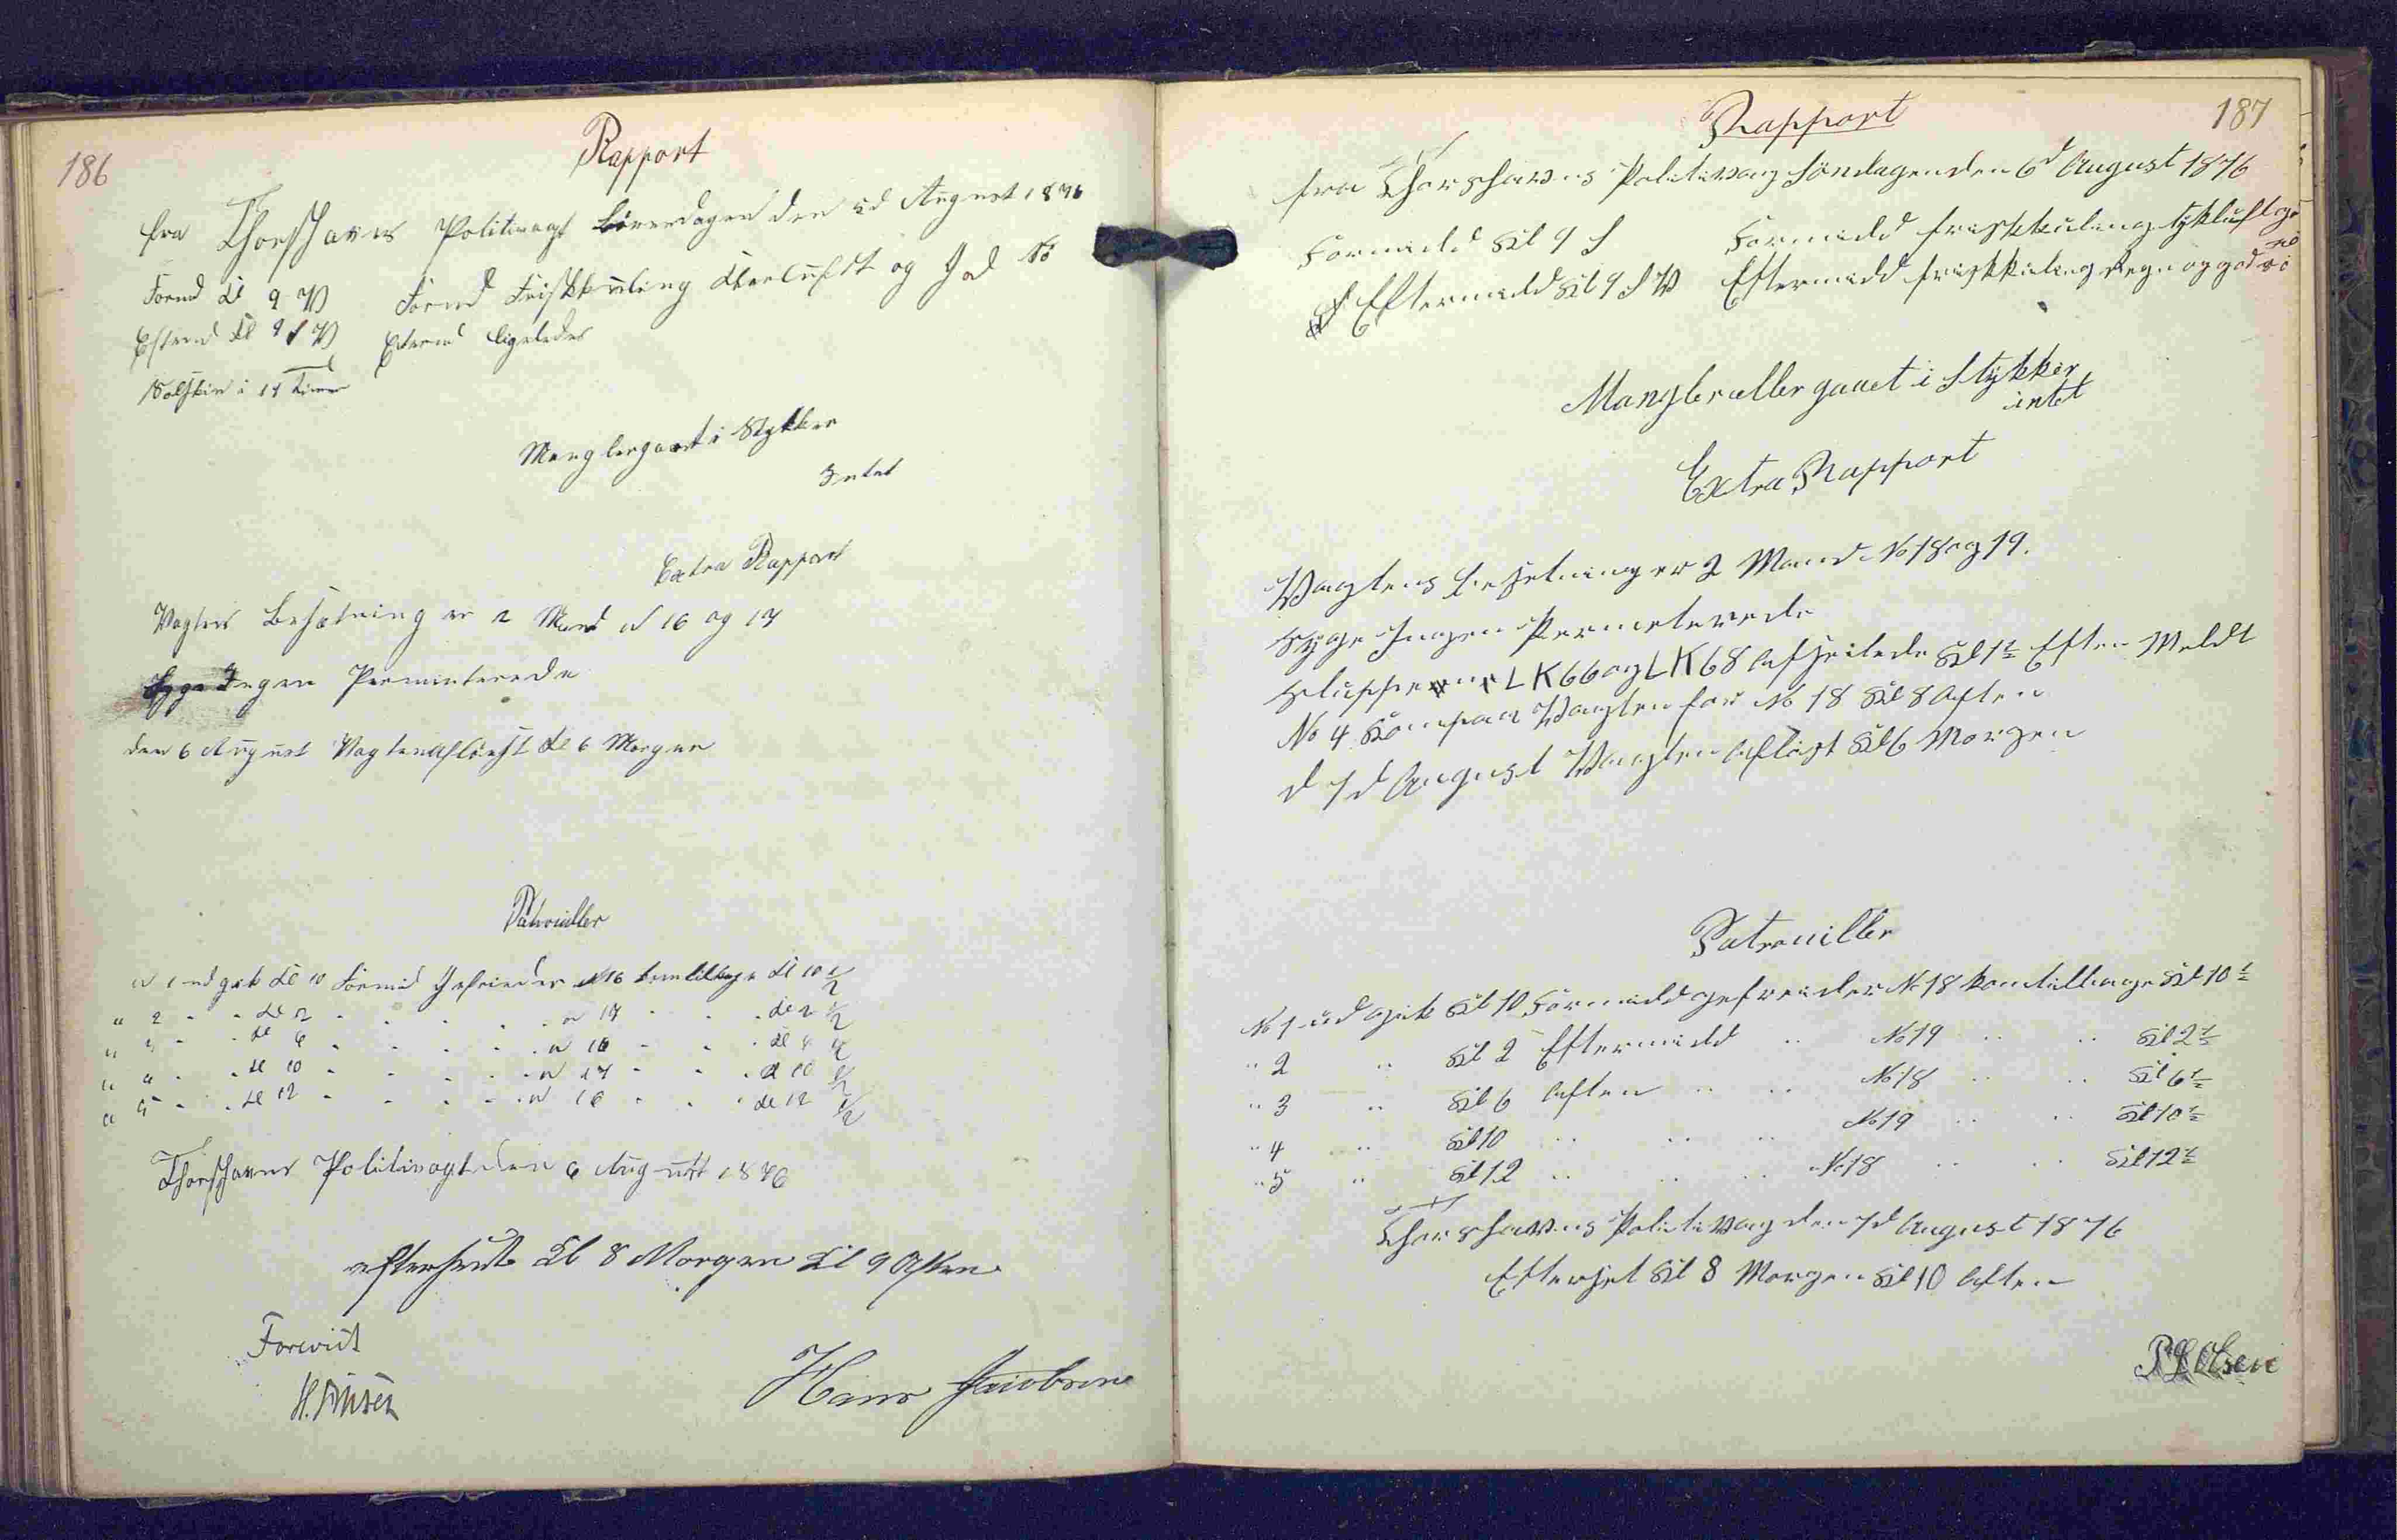 186
Rapport
fra Thorshavns Politivagt Löverdagen den 5d August 1876
Formd Kl 9 V Formd Friskkuling Klarluft og God Sö
Efterd Kl 9 S V Efterm ligeledes
Solskin i 14 Timer
Manglergaaet i Stykker
Intet
Extra Rapport
Vagtens Besætning er 2 Mand N 16 og 17
Syge Ingen Perminterede
den 6 August Vagten Aflöest Kl 6 Morgen
Patrouiller
N 1 ud gik Kl 10 Formid Gefreider N 16 kom tilbage Kl 10 1/2
" 2 - - Kl 2 - - - - - N 17 - - - Kl 2 1/2
" 3 - - Kl 6 - - - - - N 16 - - - Kl 6 1/2
" 4 - - Kl 10 - - - - - N 17 - - - Kl 10 1/2
" 5 - - Kl 12 - - - - - N 16 - - - Kl 12 1/2
Thorshavns Politivagt den 6 August 1876
efterseet Kl 8 Morgen Kl 9 Aften
Forevist
Hans Jacobsen
187
Rapport
fra Thorshavns Politivagt Söndagen den 6d August 1876
Formidd Kl 9 S Formidd friskkuling tykluft og
Eftermidd Kl 9 S V Eftermidd friskkuling Regn og god Sö
Mangler eller gaaet i Stykker
intet
Extra Rapport
Vagtens Besetning er 2 Mand No 18 og 19.
Syge Ingen Permeterede
Slupperne LK66 og LK68 afseilede Kl 1½ Efter Meldt
No 4 Kom paa Vagten for No 18 Kl 8 Aften
d 7d August Vagten Aflöst Kl 6 Morgen
Patrouiller
No 1 ud gik Kl 10 Formidd gefreider No 18 kom tilbage Kl 10½
" 2 " Kl 2 Eftermidd " No 19 " " Kl 2½
" 3 " Kl 6 Aften " " No 18 " " Kl 6½
" 4 " Kl 10 " " " No 19 " " Kl 10½
" 5 " Kl 12 " " " No 18 " " Kl 12½
Thorshavns Politivag den 7d August 1876
Efterset Kl 8 Morgen Kl 10 Aften
Olsen